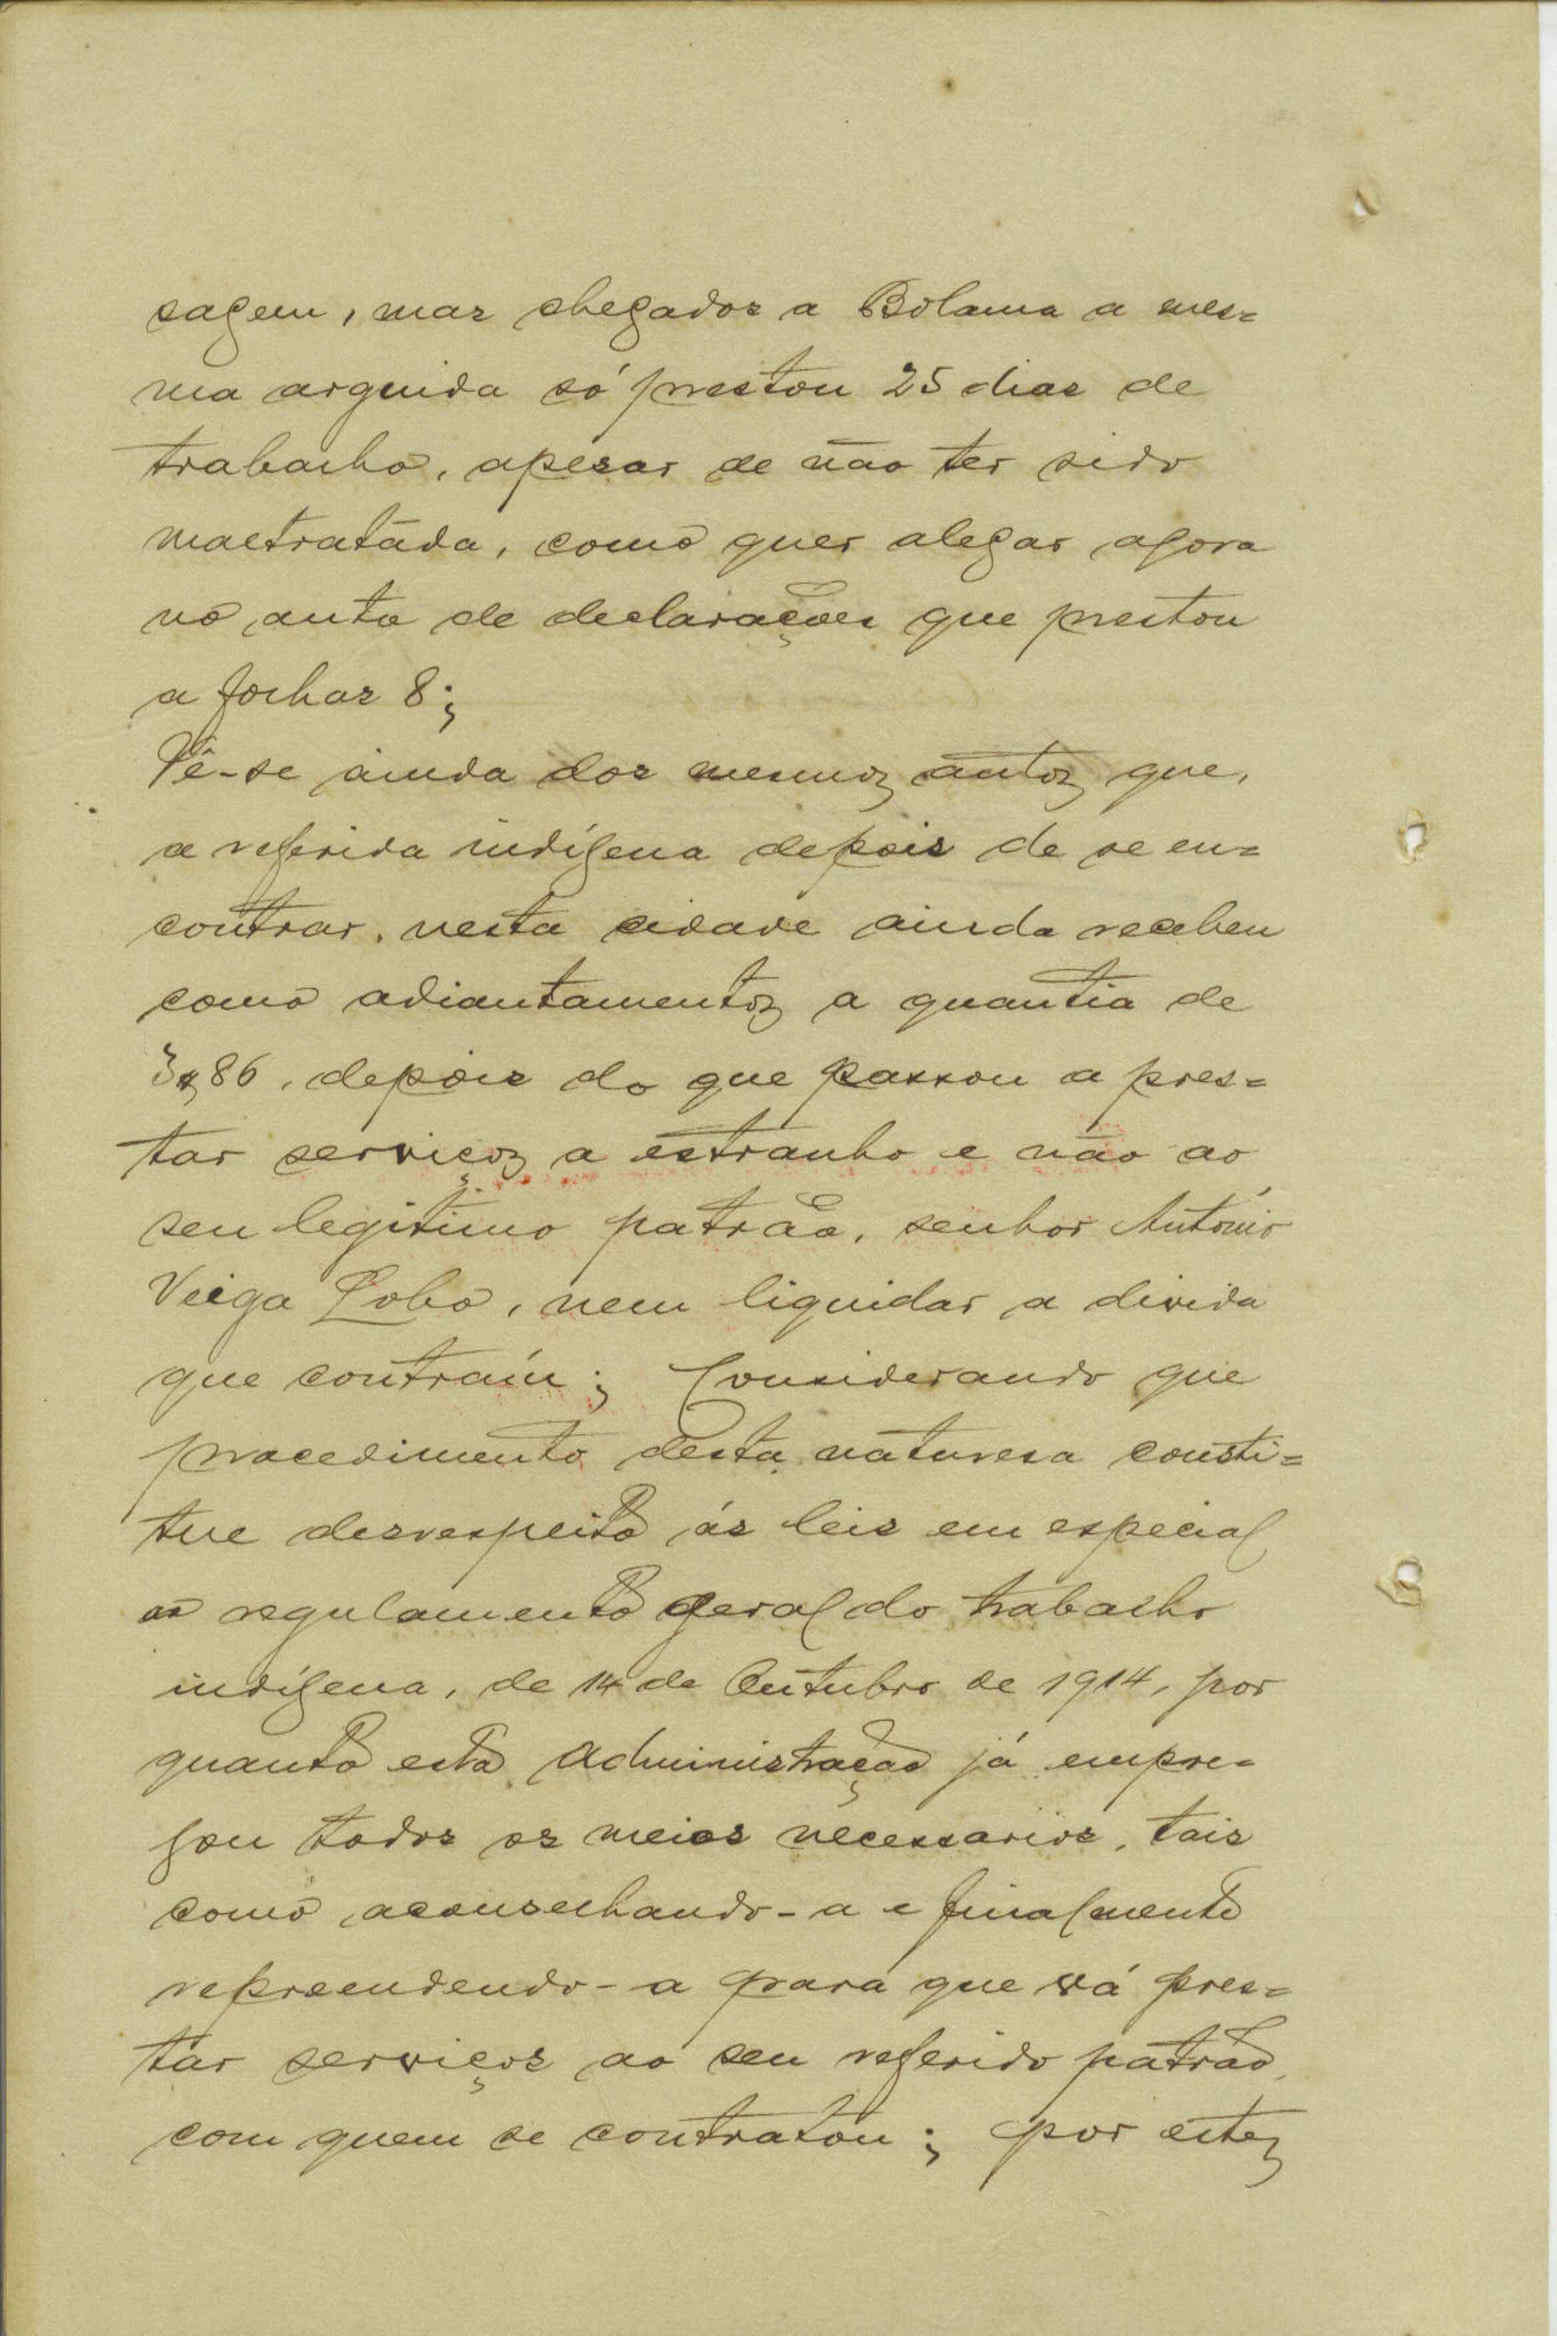 sagem, mas chegados a Bolama a mes=
ma arguida só prestou 25 dias de
trabalho, apesar de não ter sido
maltratada, como quer alegar agora
no auto de declarações que prestou
a folhas 8;
Vê-se ainda dos mesmos autos que,
a referida indígena depois de se en=
contrar, nesta cidade ainda recebeu
como adiantamentos a quantia de
3$86, depois do que passou a pres=
tar serviços a estranho e não ao
seu legitimo patrão, senhor António
Veiga Lobo, nem liquidar a divida
que contraíu; Considerando que
procedimento desta naturesa consti=
tue desrespeito ás leis em especial
ao regulamento geral do trabalho
indígena, de 14 de Outubro de 1914, por
quanto esta Administração já empre=
gou todos os meios necessarios, tais
como aconselhando-a e finalmente
repreendendo-a para que vá pres=
tar serviços ao seu referido patrão,
com quem se contratou; por estes